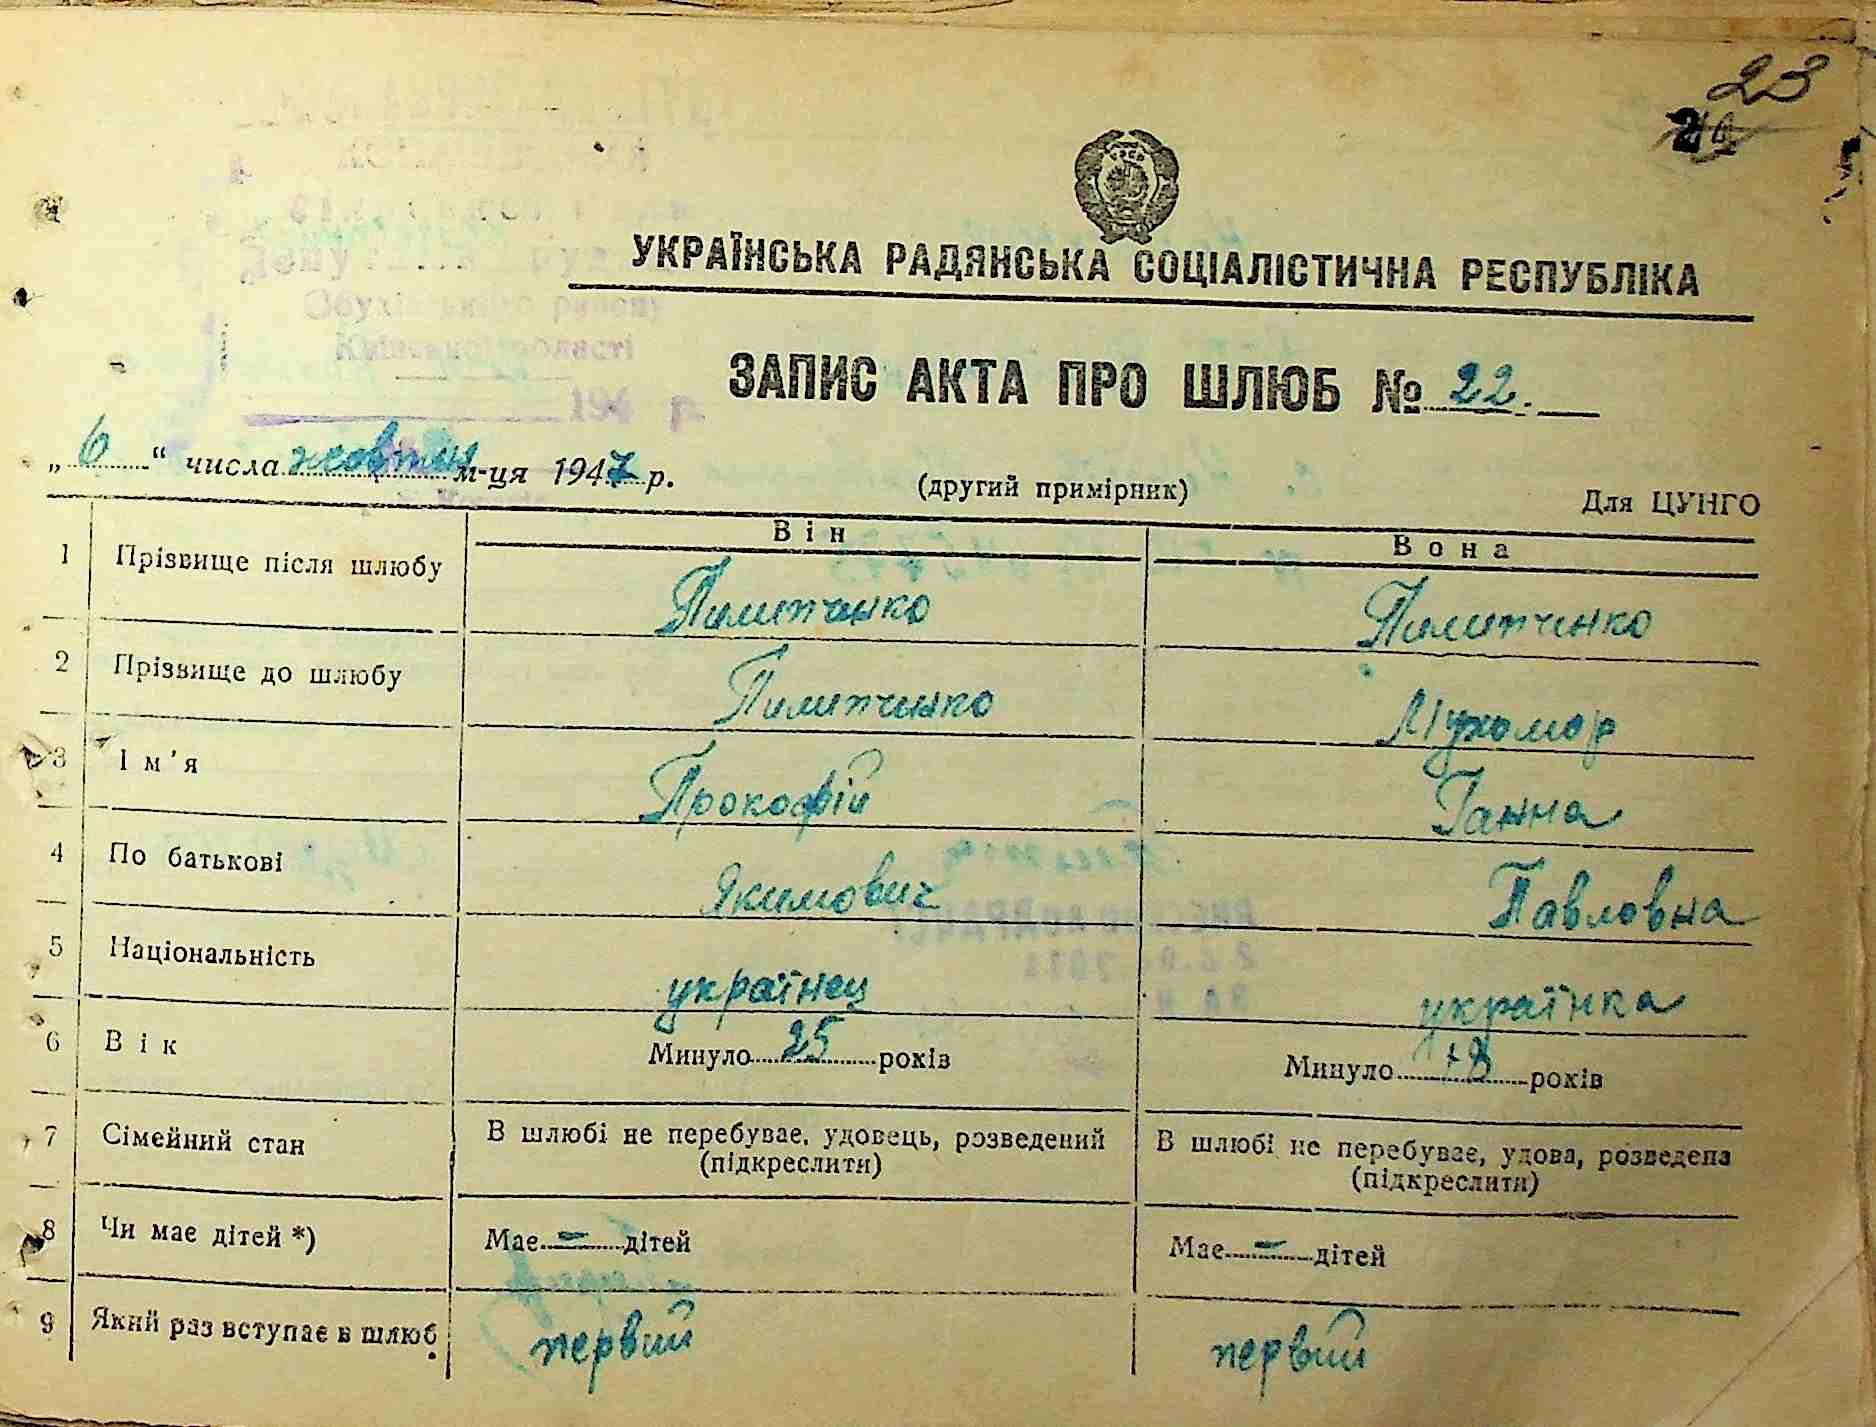 23
24
УКРАЇНСЬКА РАДЯНСЬКА СОЦІАЛІСТИЧНА РЕСПУБЛІКА
ЗАПИС АКТА ПРО ШЛЮБ № 22.
„ 6 “ числа жовтня м-ця 1947 р.
(другий примірник)
Для ЦУНГО
Він
Вона
1 Прізвище після шлюбу Пилипченко Пилипченко
2 Прізвище до шлюбу Пилипченко Мухомор
3 Ім'я Прокофій Ганна
4 По батькові Якимович Павловна
5 Національність українец українка
6 Вік Минуло 25 років Минуло 18 років
7 Сімейний стан В шлюбі не перебуває, удовець, розведений (підкреслити) В шлюбі не перебуває, удова, розведена (підкреслити)
8 Чи має дітей *) Має – дітей Має – дітей
9 Який раз вступає в шлюб первий первий
Обухівського району
Київської області
194 р.